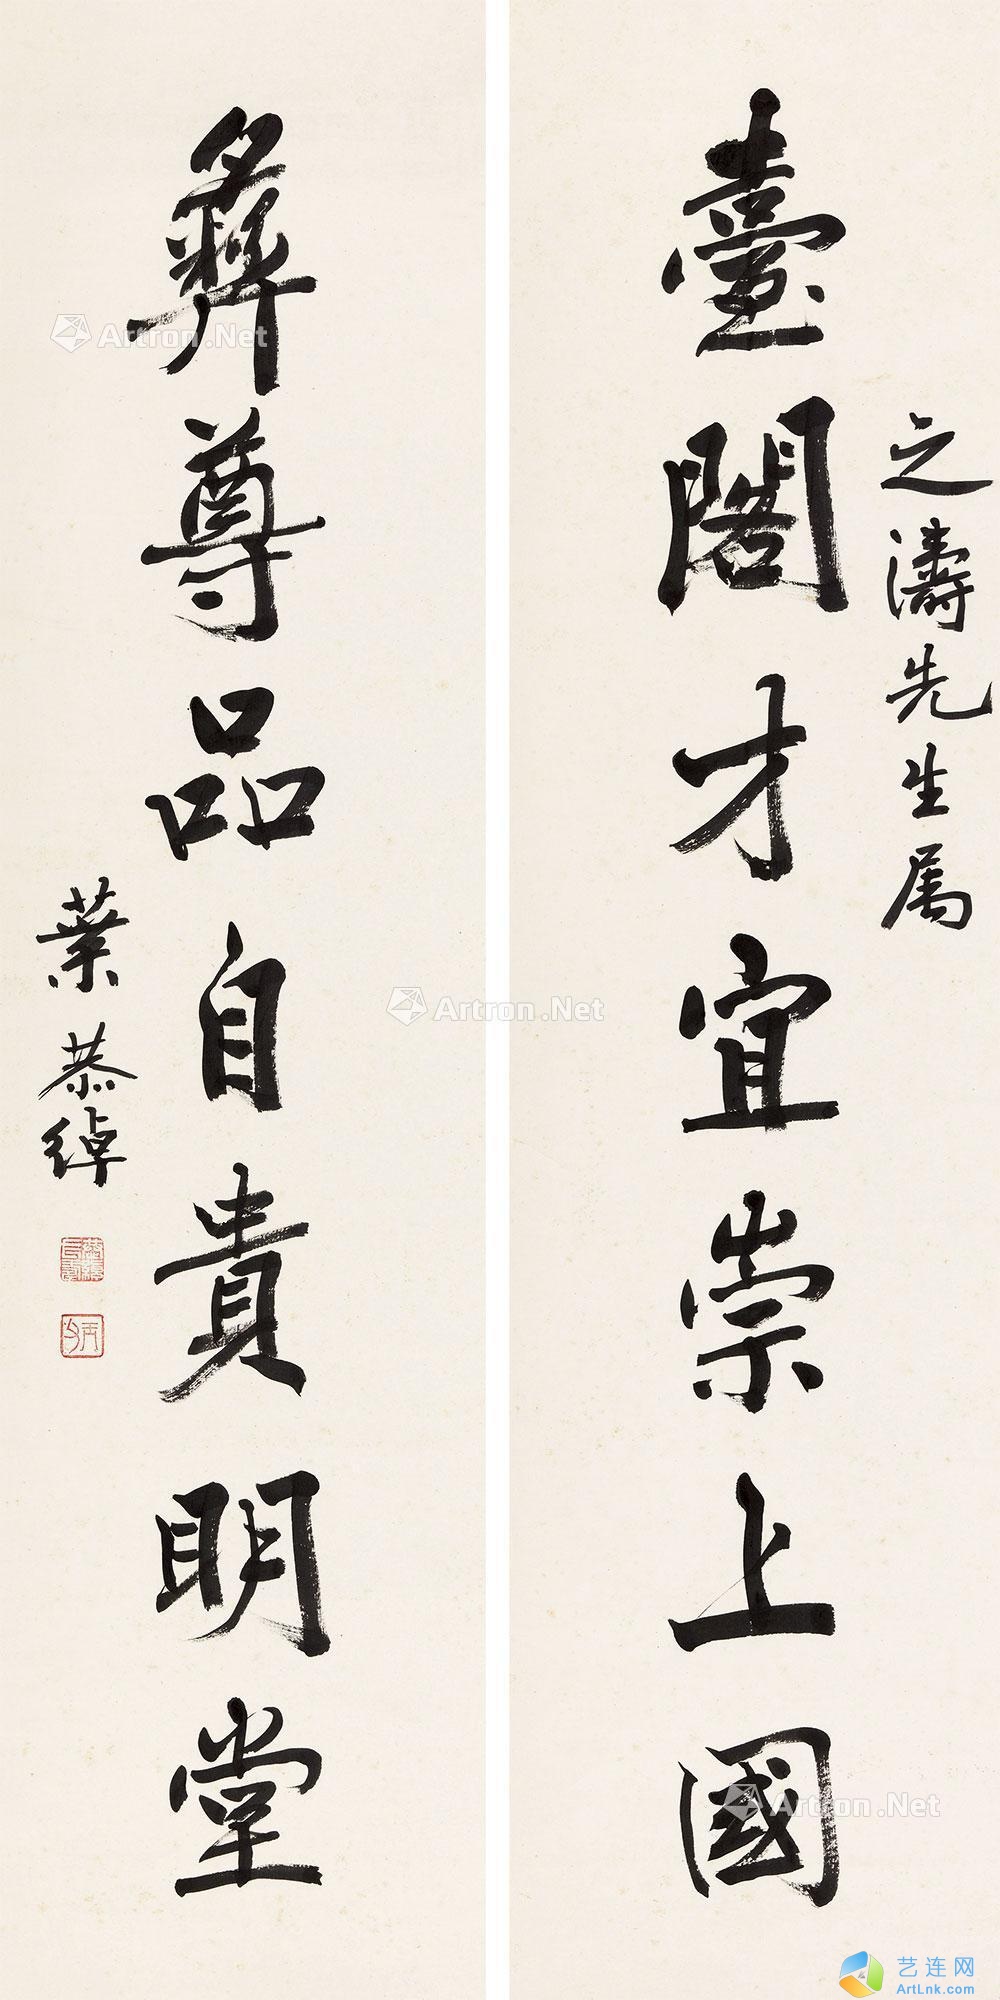 之濤先生属
臺閣才宜崇上國
彝尊品自貴明堂
葉恭綽
Artron.Net
Artron.Net
Artron.Net
艺连网
ArtLnk.com